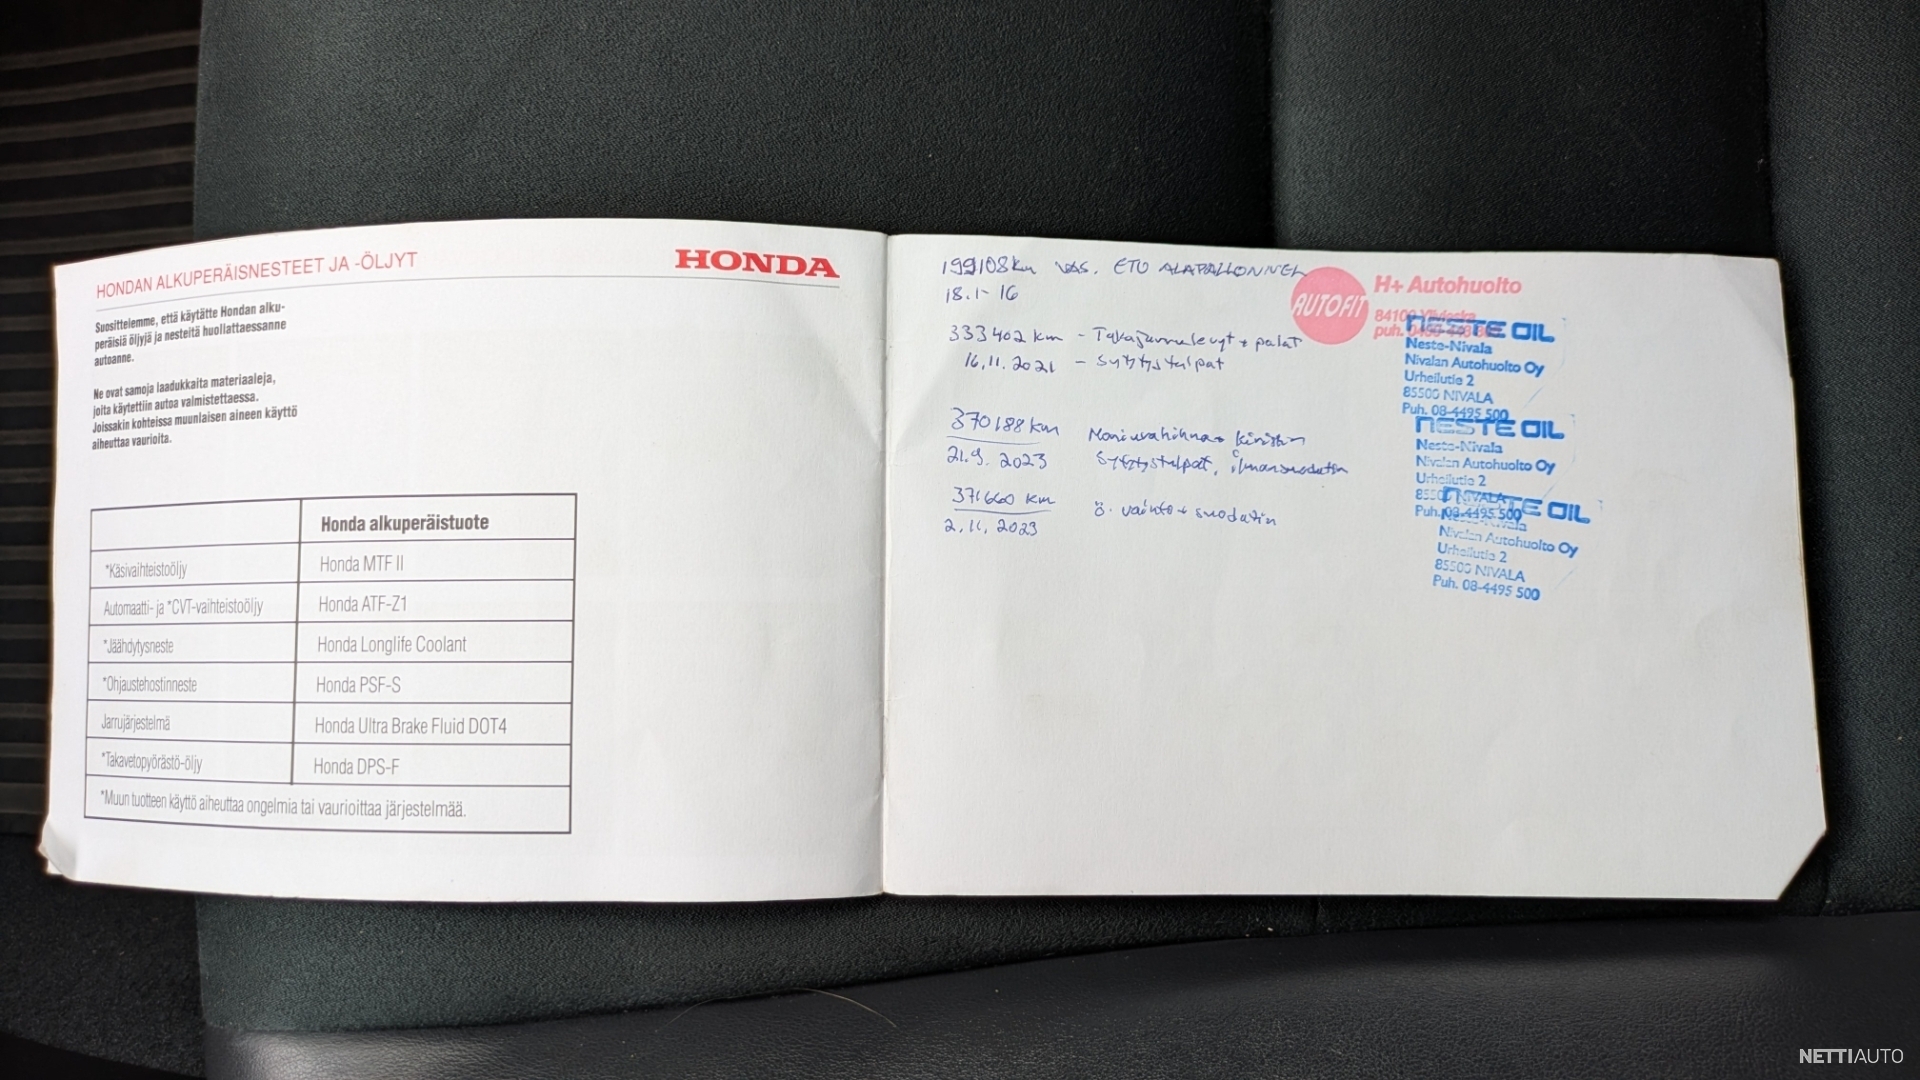 HONDAN ALKUPERÄISNESTEET JA -ÖLJYT
HONDA
Suosittelemme, että käytätte Hondan alku-
peräisiä öljyjä ja nesteitä huollattaessanne
autoanne.
Ne ovat samoja laadukkaita materiaaleja,
joita käytettiin autoa valmistettaessa.
Joissakin kohteissa muunlaisen aineen käyttö
aiheuttaa vaurioita.
Honda alkuperäistuote
*Käsivaihteistoöljy Honda MTF II
Automaatti- ja *CVT-vaihteistoöljy Honda ATF-Z1
*Jäähdytysneste Honda Longlife Coolant
*Ohjaustehostinneste Honda PSF-S
Jarrujärjestelmä Honda Ultra Brake Fluid DOT4
*Takavetopyörästö-öljy Honda DPS-F
*Muun tuotteen käyttö aiheuttaa ongelmia tai vaurioittaa järjestelmää.
199108km VAS. ETU ALAPALLONNIVEL
18.1-16
333402 km - Takajarrulevyt + palat
16.11.2021 - Sytytystulpat
370188 km Moniurahihna + kiristin
21.9.2023 Sytytystulpat, ilmansuodatin
371660 km ö. vaihto + suodatin
2.11.2023
AUTOFIT
H+ Autohuolto
84100 Ylivieska
puh.
NESTE OIL
Neste-Nivala
Nivalan Autohuolto Oy
Urheilutie 2
85500 NIVALA
Puh. 08-4495 500
NESTE OIL
Neste-Nivala
Nivalan Autohuolto Oy
Urheilutie 2
85500 NIVALA
Puh. 08-4495 500
NESTE OIL
Neste-Nivala
Nivalan Autohuolto Oy
Urheilutie 2
85500 NIVALA
Puh. 08-4495 500
NETTIAUTO